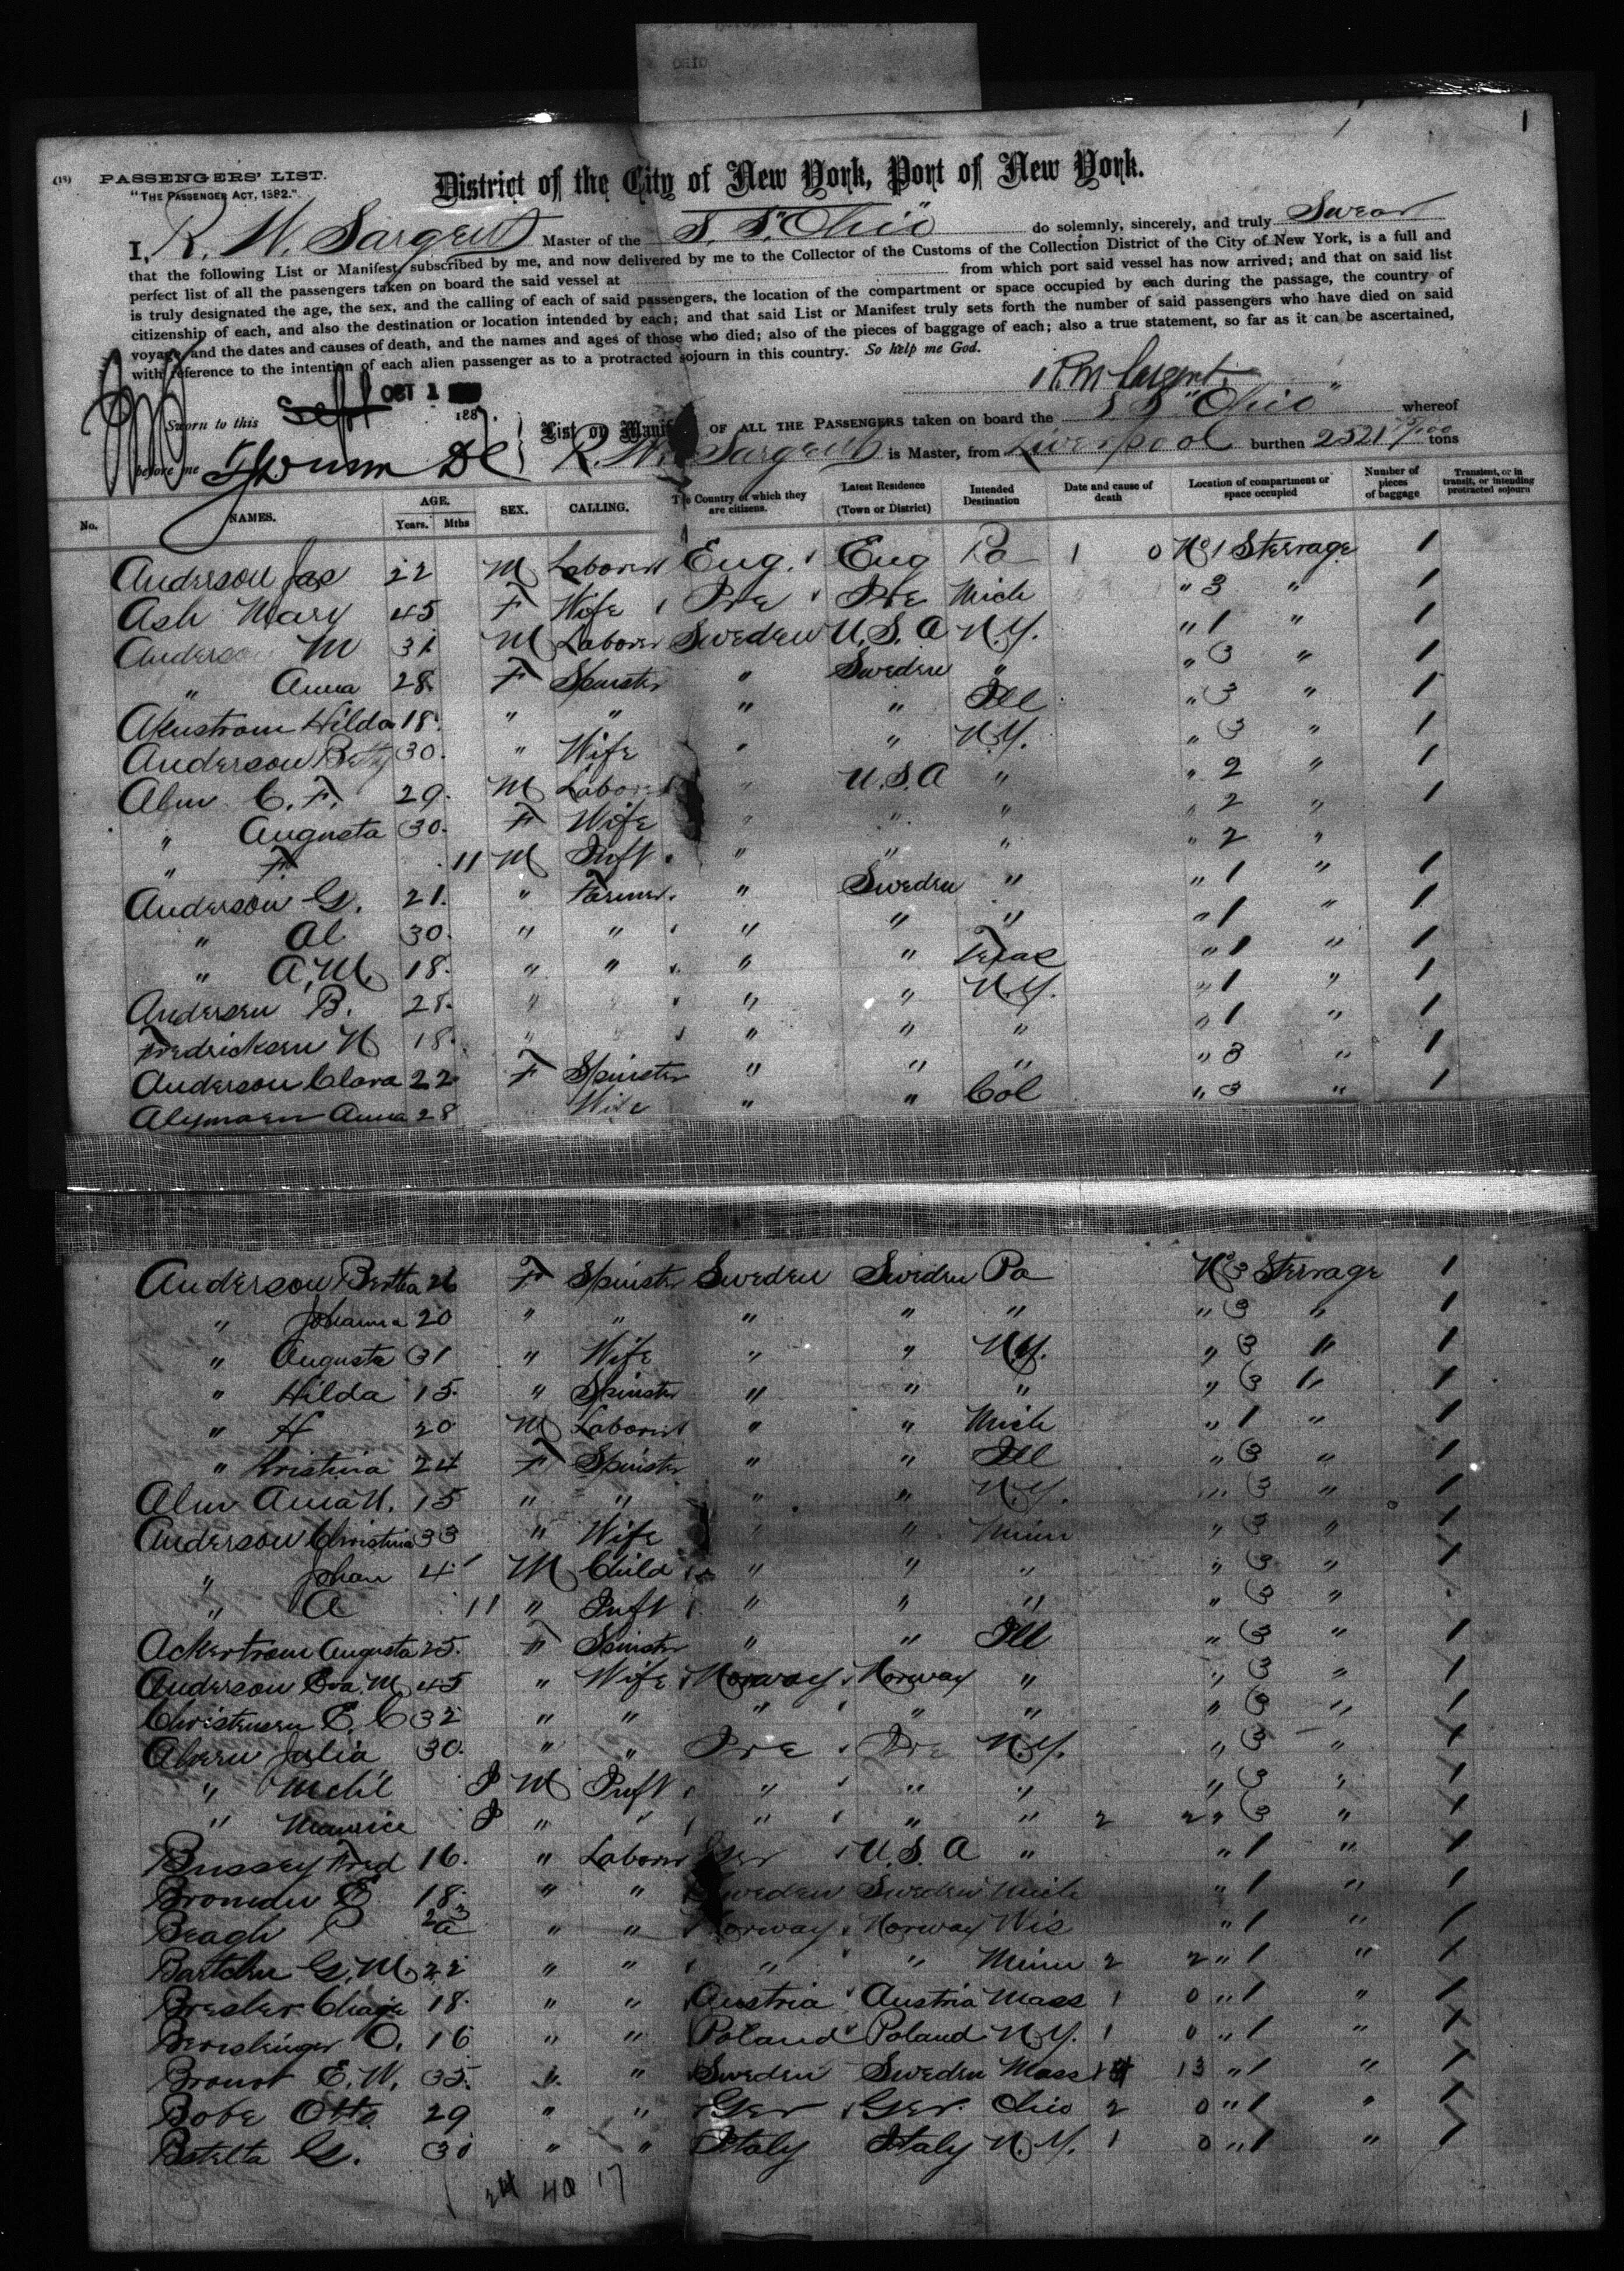 OHIO
1
(18) PASSENGERS' LIST.
"THE PASSENGER ACT, 1882."
District of the City of New York, Port of New York.
I, R. W. Sargent Master of the S. S. "Ohio" do solemnly, sincerely, and truly Swear
that the following List or Manifest, subscribed by me, and now delivered by me to the Collector of the Customs of the Collection District of the City of New York, is a full and
perfect list of all the passengers taken on board the said vessel at from which port said vessel has now arrived; and that on said list
is truly designated the age, the sex, and the calling of each of said passengers, the location of the compartment or space occupied by each during the passage, the country of
citizenship of each, and also the destination or location intended by each; and that said List or Manifest truly sets forth the number of said passengers who have died on said
voyage, and the dates and causes of death, and the names and ages of those who died; also of the pieces of baggage of each; also a true statement, so far as it can be ascertained,
with reference to the intention of each alien passenger as to a protracted sojourn in this country. So help me God.
R W Sargent
Sworn to this Sept OCT 1 188
before me
List or Manifest OF ALL THE PASSENGERS taken on board the S S "Ohio" whereof
R. W. Sargent is Master, from Liverpool burthen 2521 tons
No. NAMES. AGE. Years. Mths SEX. CALLING. The Country of which they are citizens. Latest Residence (Town or District) Intended Destination Date and cause of death Location of compartment or space occupied Number of pieces of baggage Transient, or in transit, or intending protracted sojourn
Anderson Jas 22 M Laborer Eng. Eng Pa 1 0 No 1 Sterrage 1
Ash Mary 45 F Wife Ire Ire Mich " 3 " 1
Anderson M 31 M Laborer Sweden U.S.A N.Y. " 1 " 1
" Anna 28 F Spinster " Sweden " " 3 " 1
Akustrom Hilda 18 " " " " Ill " 3 " 1
Anderson Betty 30 " Wife " " N.Y. " 3 " 1
Alm C. F. 29 M Laborer " U.S.A " " 2 " 1
" Augusta 30 F Wife " " " " 2 " 1
" F. 11 M Inft " " " " 2 "
Anderson G. 21 " Farmer " Sweden " " 1 " 1
" Al 30 " " " " " " 1 " 1
" A. M. 18 " " " " Texas " 1 " 1
Andersen B. 28 " " " " N.Y. " 1 " 1
Fredricksen N 18 " " " " " " 1 " 1
Anderson Clara 22 F Spinster " " " " 3 " 1
Anna 28 Wife " " Col " 3 " 1
Anderson Bertha 26 F Spinster Sweden Sweden Pa No 3 Sterrage 1
" Johanna 20 " " " " " " 3 " 1
" Augusta 31 " Wife " " N.Y. " 3 " 1
" Hilda 15 " Spinster " " " " 3 " 1
" H 20 M Laborer " " Mich " 1 " 1
" Kristina 24 F Spinster " " Ill " 3 " 1
Alm Anna N. 15 " " " " N.Y. " 3 " 1
Anderson Christina 33 " Wife " " Minn " 3 " 1
" Johan 4 M Child " " " " 3 " 1
" A 11 " Inft " " " " 3 "
Ackertrom Augusta 25 " Spinster " " Ill " 3 " 1
Anderson Eva M 45 " Wife Norway Norway " " 3 " 1
Christensen E. C 32 " " " " " " 3 " 1
Ahern Julia 30 " " Ire Ire N.Y. " 3 " 1
" Mchl M Inft " " " " 3 " 1
" Maurice " " " " " 2 2 " 3 " 1
Bussey Fred 16 " Laborer Ger U.S.A " " 1 " 1
E 18 " " Sweden Sweden Mich " 1 " 1
Beagh P " " Norway Norway Wis " 1 " 1
G. M. 22 " " " " Minn 2 2 " 1 " 1
Bresler 18 " " Austria Austria Mass 1 0 " 1 " 1
O. 16 " " Poland Poland N.Y. 1 0 " 1 " 1
E. W. 35 " " Sweden Sweden Mass 14 13 " 1 " 1
Bobe Otto 29 " " Ger Ger. Ohio 2 0 " 1 " 1
G. 30 " " Italy Italy N.Y. 1 0 " 1 " 1
24 40 17